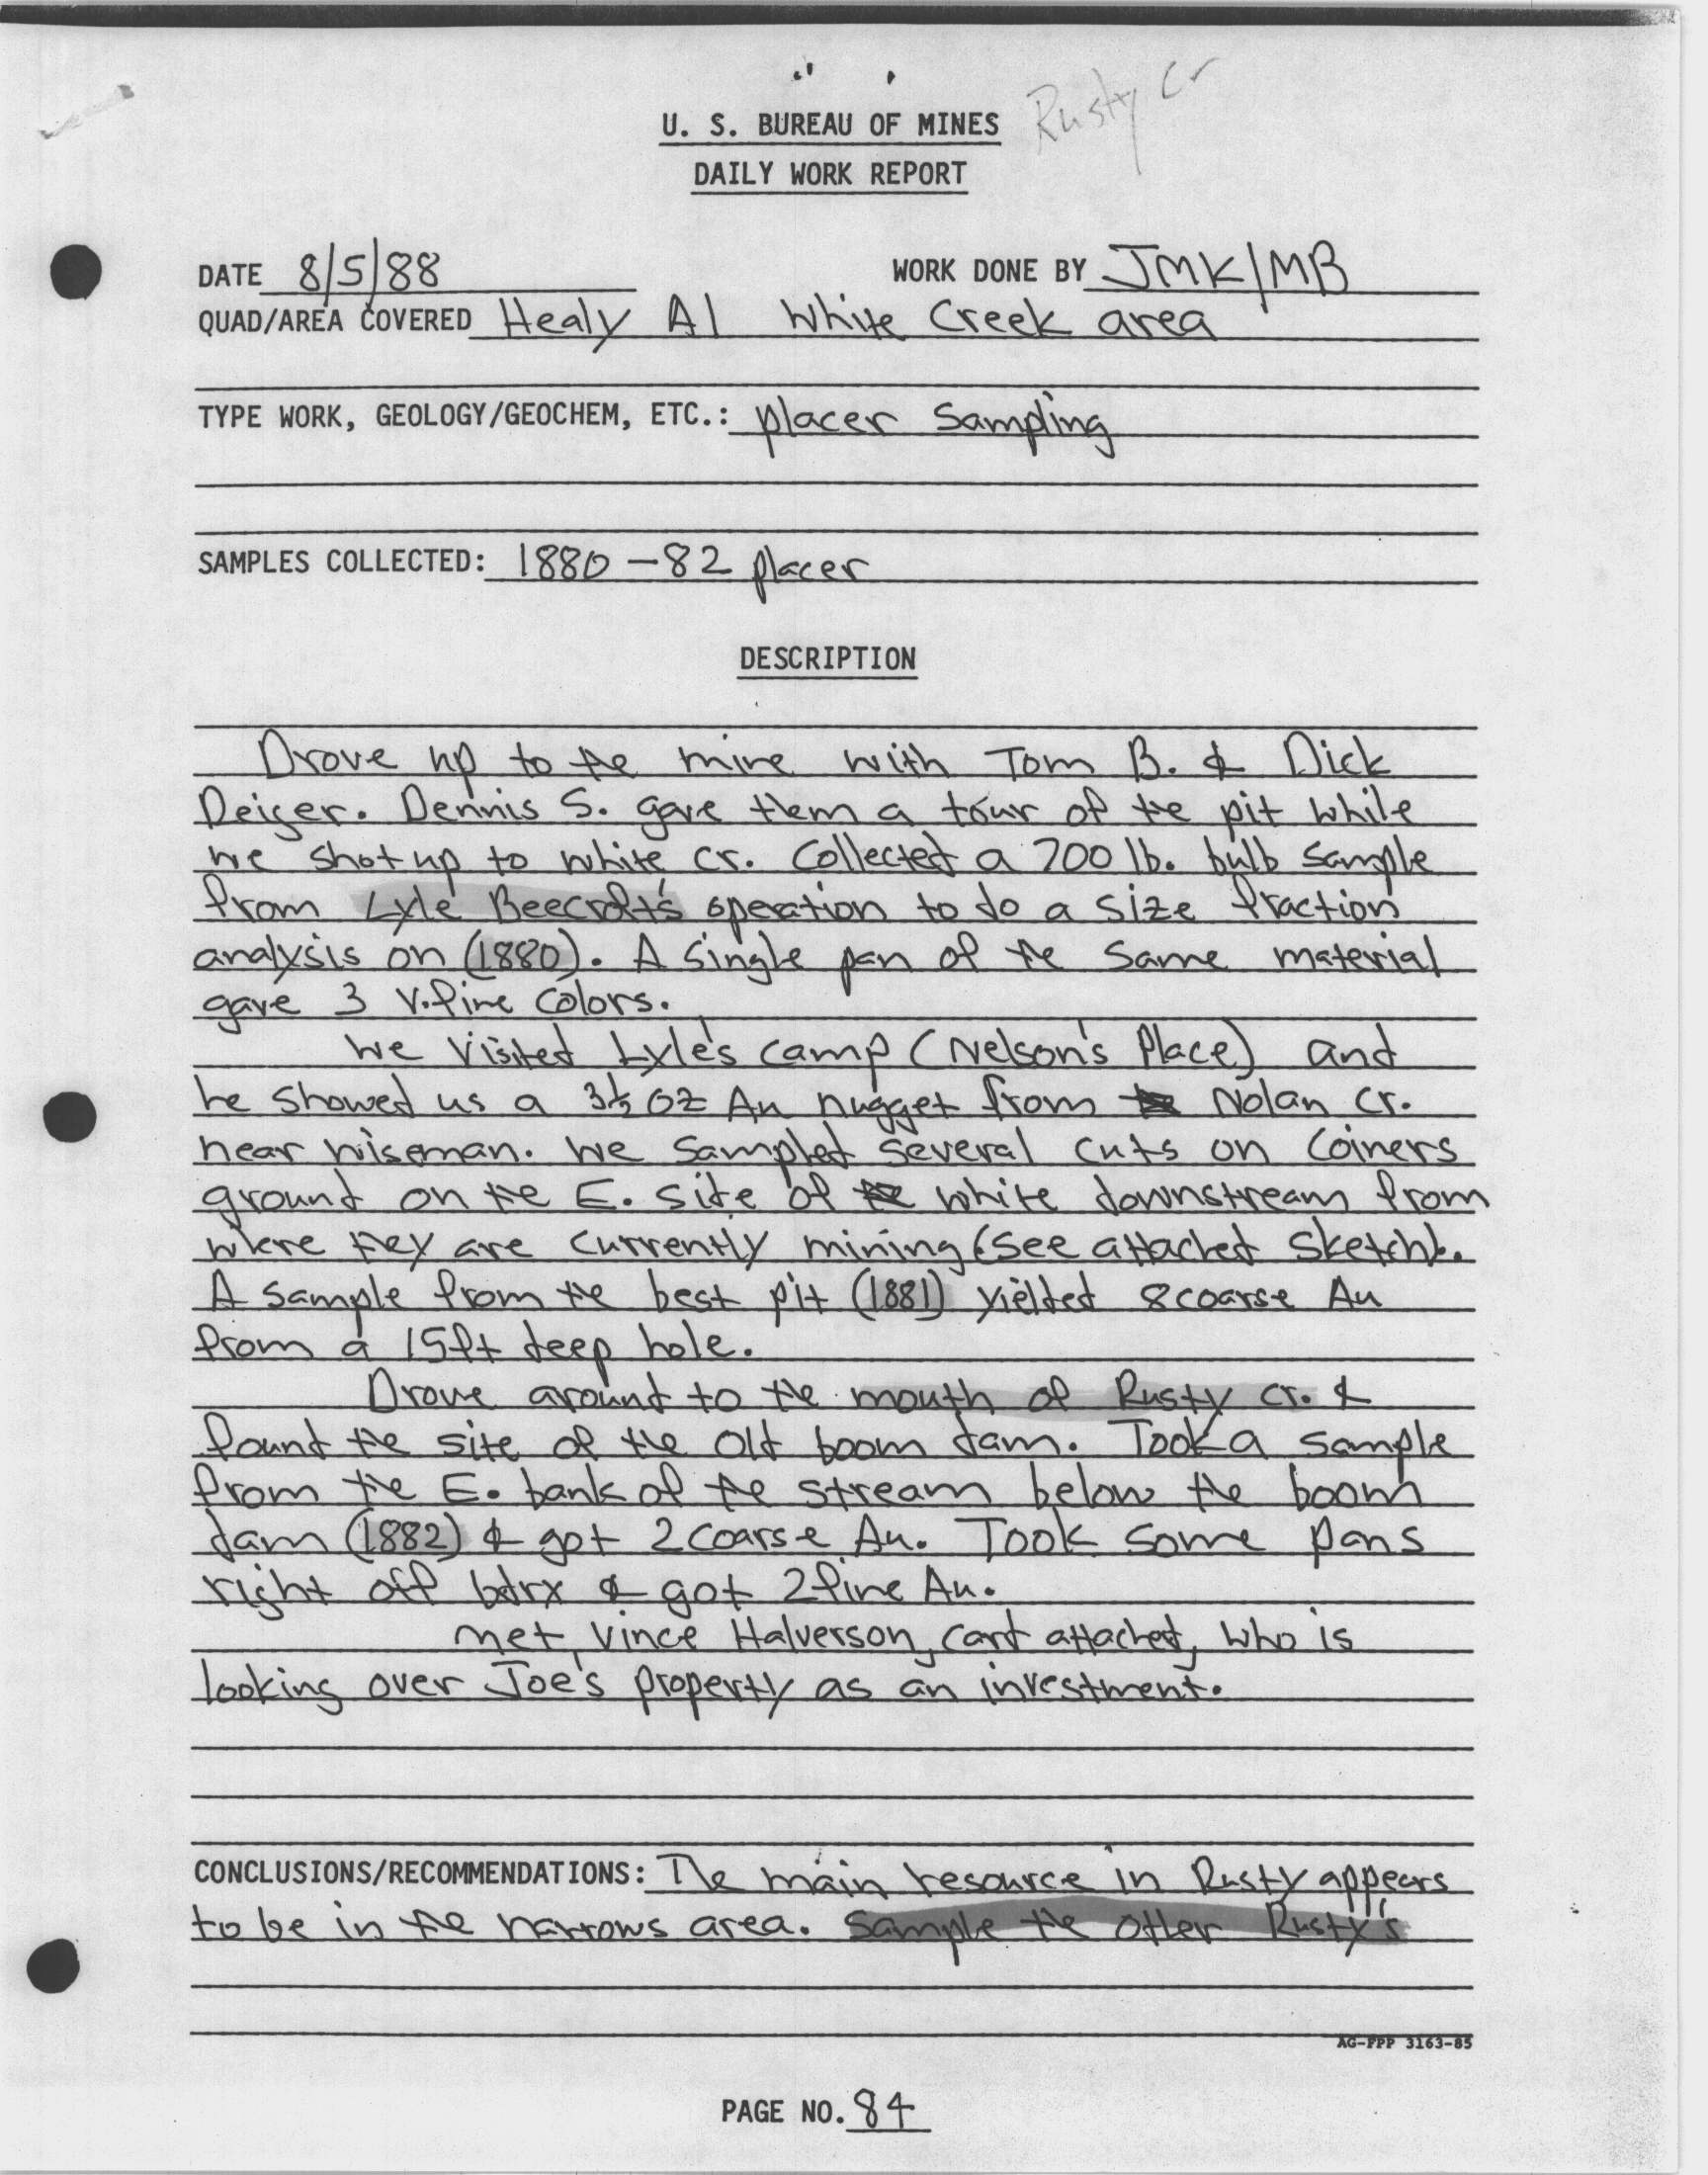 Rusty Cr
U. S. BUREAU OF MINES
DAILY WORK REPORT
DATE 8/5/88 WORK DONE BY JMK/MB
QUAD/AREA COVERED Healy A1 White Creek area
TYPE WORK, GEOLOGY/GEOCHEM, ETC.: placer Sampling
SAMPLES COLLECTED: 1880-82 placer
DESCRIPTION
Drove up to the mine with Tom B. & Dick
Deiser. Dennis S. gave them a tour of the pit while
we shot up to white cr. Collected a 700 lb. bulb sample
from Lyle Beecroft's operation to do a size fraction
analysis on (1880). A single pan of the same material
gave 3 v.fine colors.
We visited Lyle's camp (Nelson's Place) and
he showed us a 3½ oz Au nugget from Nolan Cr.
near wiseman. We sampled several cuts on Coiners
ground on the E. side of white downstream from
where they are currently mining (see attached sketch).
A sample from the best pit (1881) yielded 8 coarse Au
from a 15ft deep hole.
Drove around to the mouth of Rusty cr. &
found the site of the old boom dam. Took a sample
from the E. bank of the stream below the boom
dam (1882) & got 2 coarse Au. Took some pans
right off bdrx & got 2 fine Au.
Met Vince Halverson, card attached, who is
looking over Joe's property as an investment.
CONCLUSIONS/RECOMMENDATIONS: The main resource in Rusty appears
to be in the narrows area. Sample the other Rusty's
AG-FPP 3163-85
PAGE NO. 84